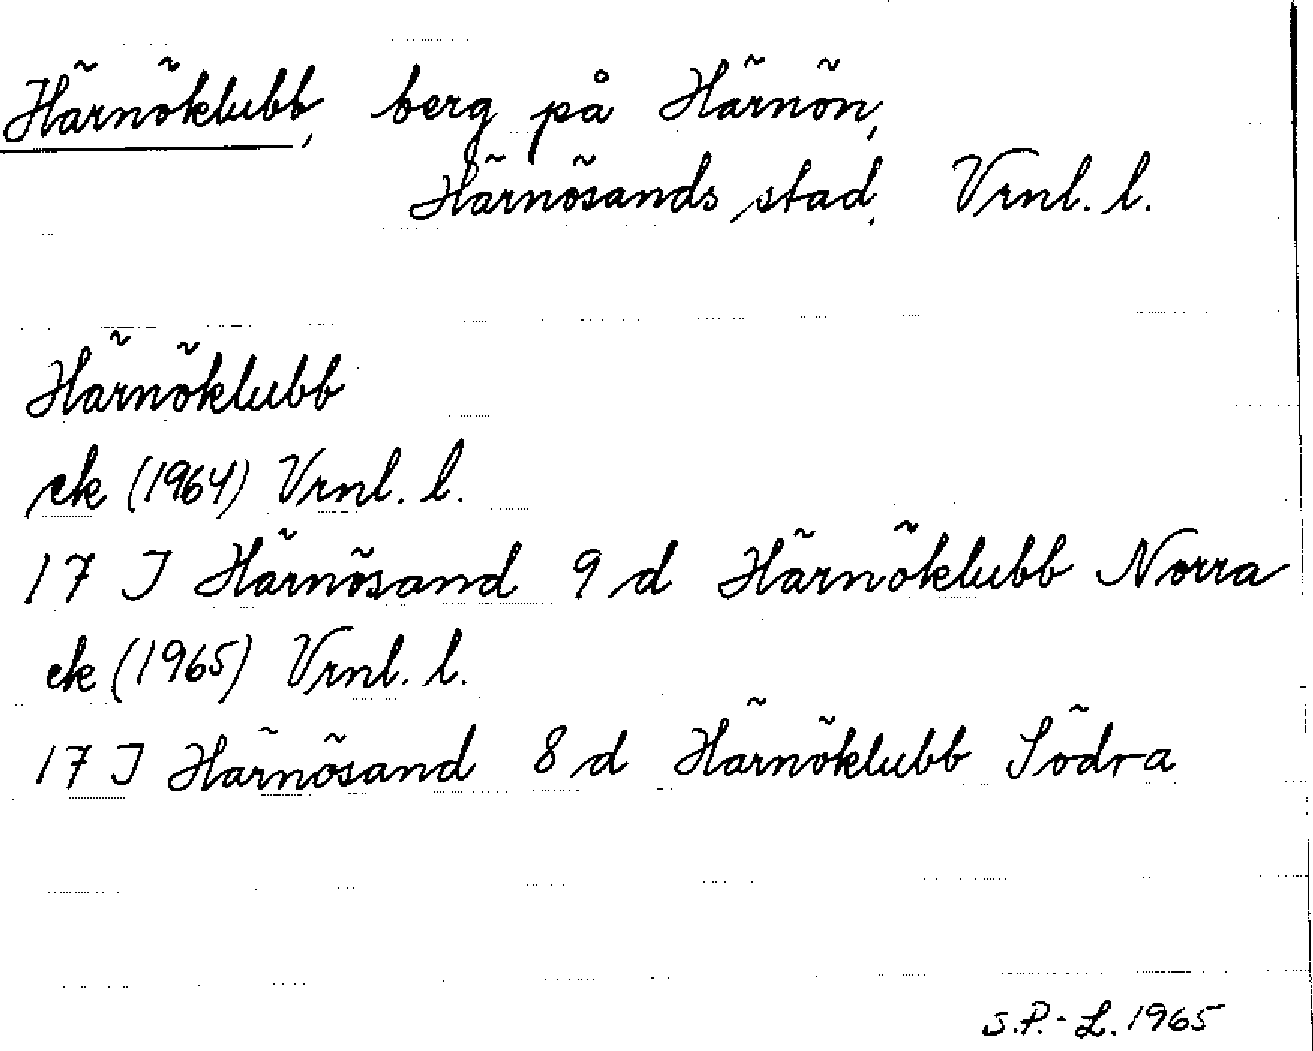 Härnöklubb, berg på Härnön,
Härnösands stad, Vrnl. l.
Härnöklubb
ek (1964) Vrnl. l.
17 J Härnösand 9 d Härnöklubb Norra
ek (1965) Vrnl. l.
17 J Härnösand 8 d Härnöklubb Södra
S.P.-L. 1965